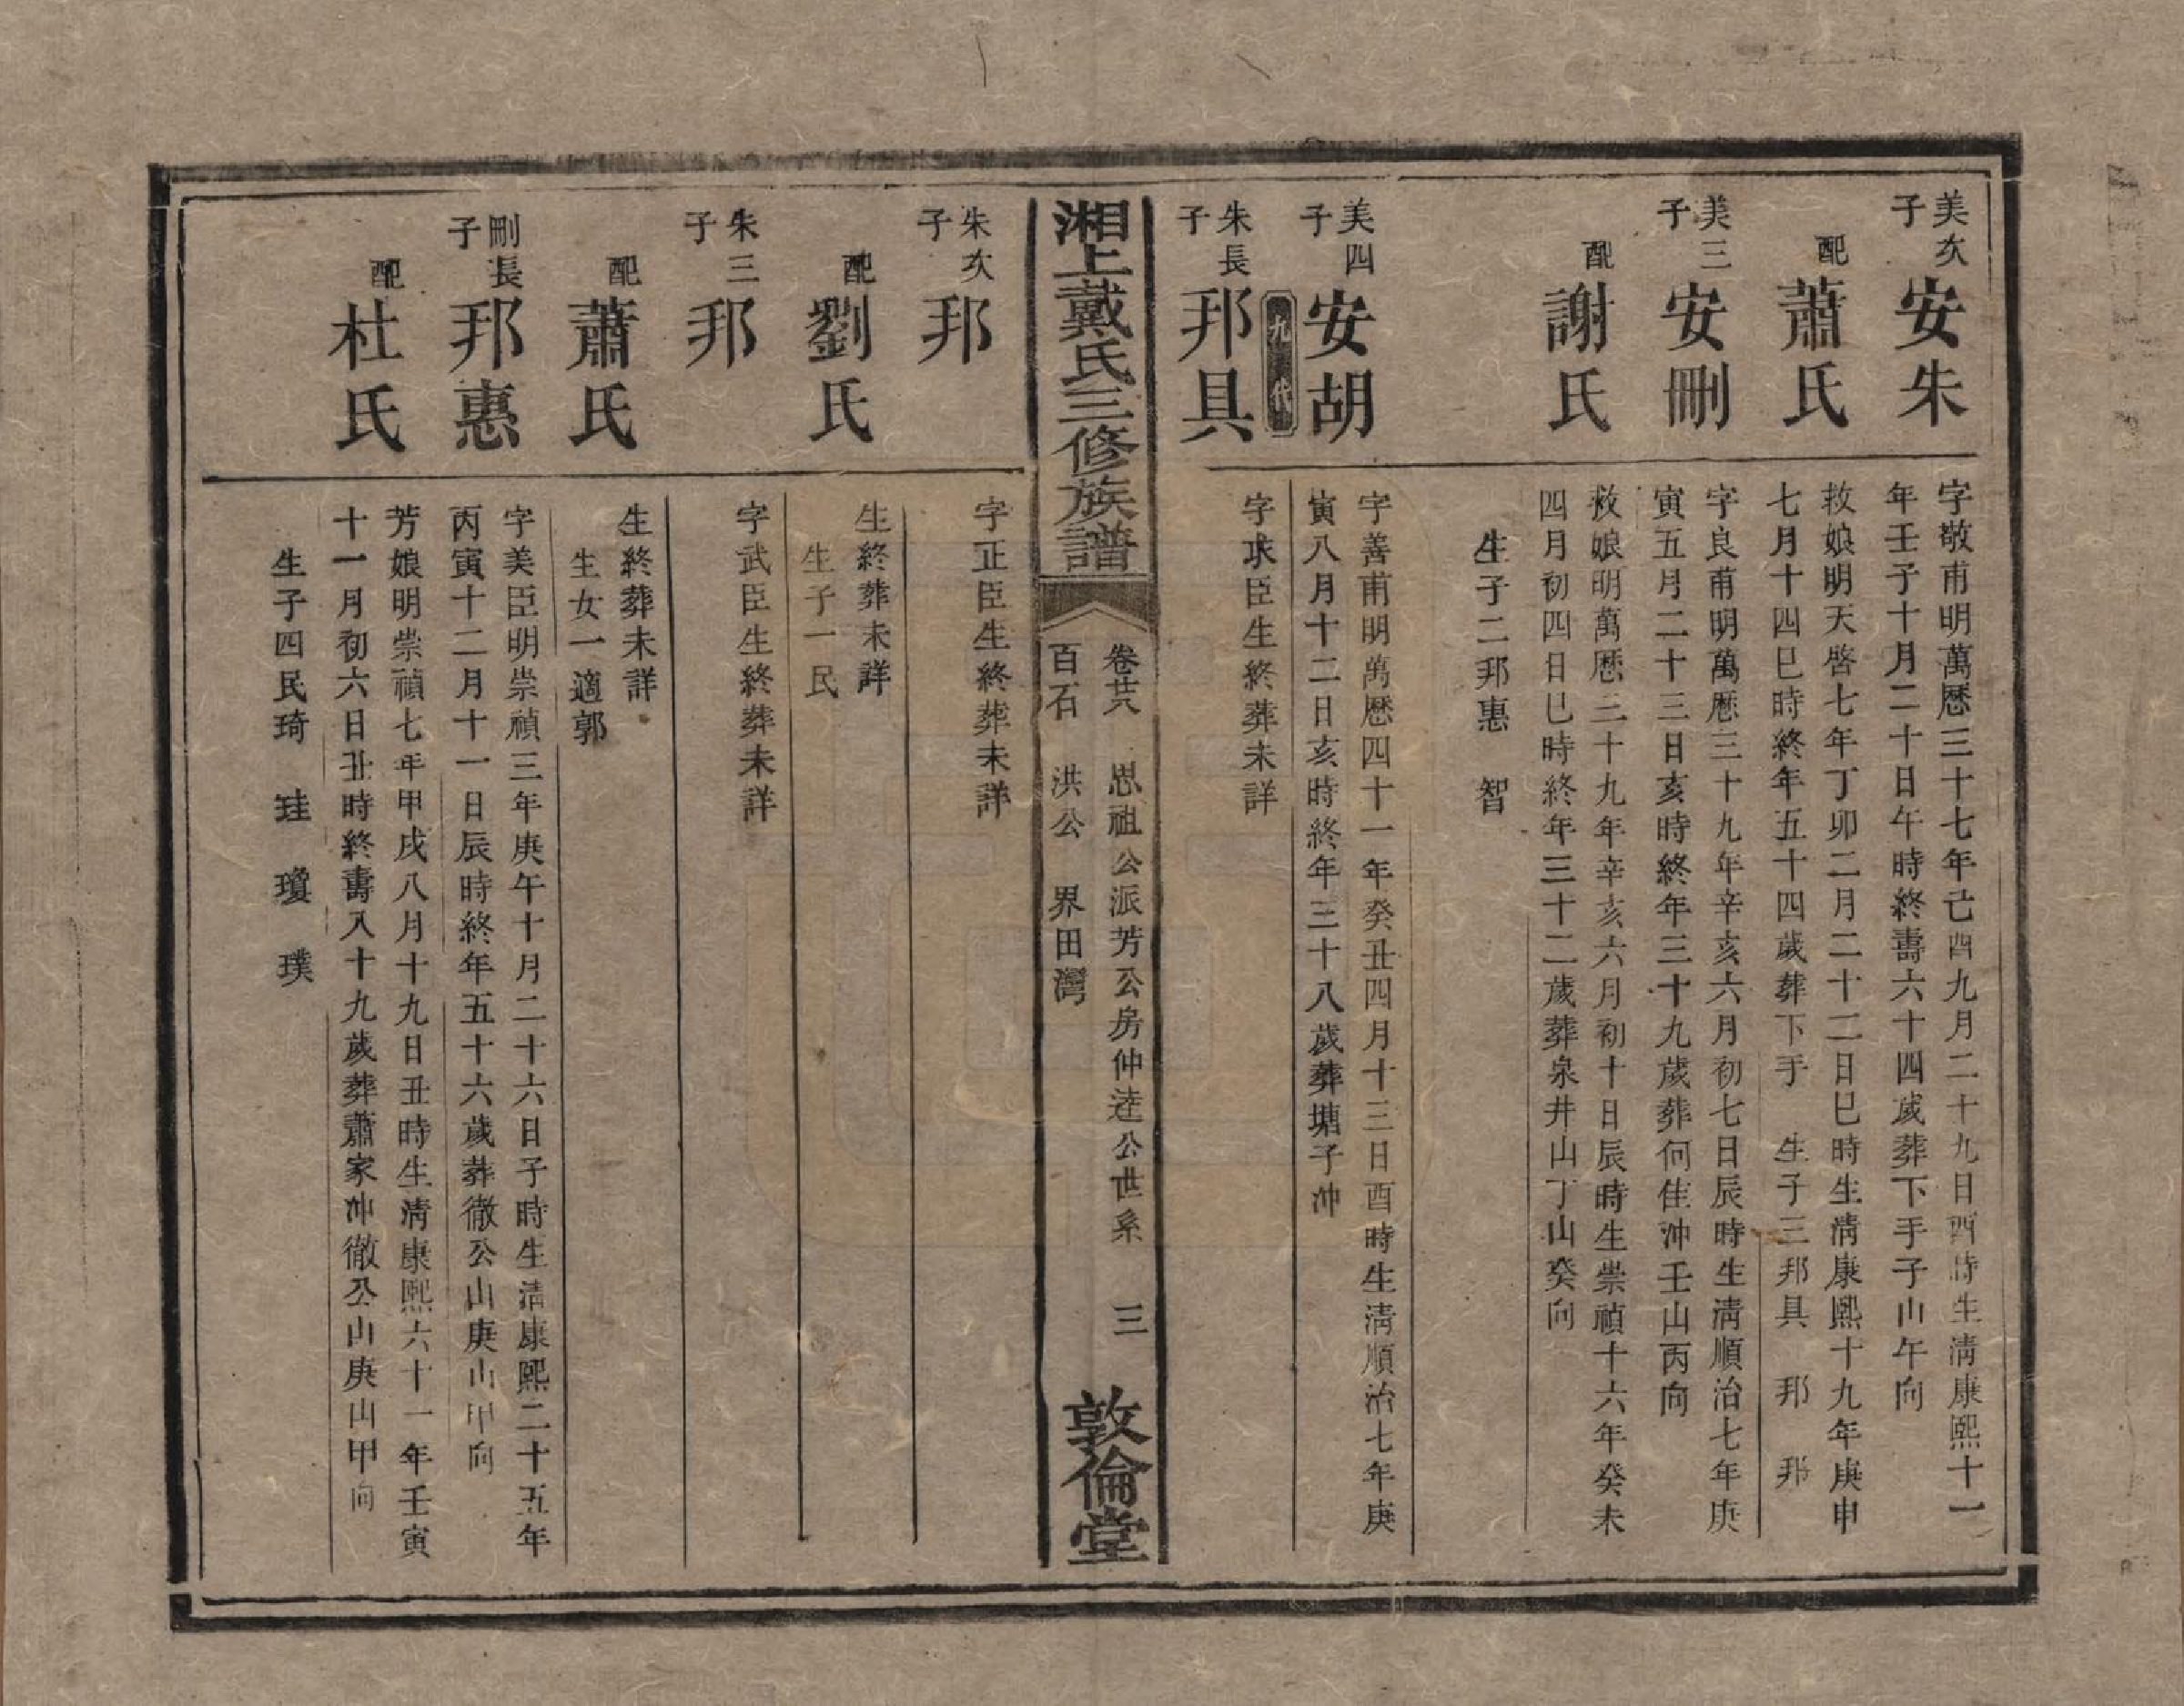 美次子
安朱
字敬甫明萬曆三十七年己酉九月二十九日酉時生清康熙十一
年壬子十月二十日午時終壽六十四歲葬下手子山午向
配
蕭氏
救娘明天啓七年丁卯二月二十二日巳時生清康熙十九年庚申
七月十四巳時終年五十四歲葬下手 生子三邦具 邦 邦
美三子
安刪
字良甫明萬曆三十九年辛亥六月初七日辰時生清順治七年庚
寅五月二十三日亥時終年三十九歲葬何佳沖壬山丙向
配
謝氏
救娘明萬曆三十九年辛亥六月初十日辰時生崇禎十六年癸未
四月初四日巳時終年三十二歲葬泉井山丁山癸向
生子二邦惠 智
美四子
安胡
字善甫明萬曆四十一年癸丑四月十三日酉時生清順治七年庚
寅八月十二日亥時終年三十八歲葬塘子沖
九代
朱長子
邦具
字求臣生終葬未詳
湘上戴氏三修族譜
卷廿六 思祖公派芳公房仲逵公世系 三
百石 洪公 界田灣
敦倫堂
朱次子
邦
字正臣生終葬未詳
配
劉氏
生終葬未詳
生子一民
朱三子
邦
字武臣生終葬未詳
配
蕭氏
生終葬未詳
生女一適郭
刪長子
邦惠
字美臣明崇禎三年庚午十月二十六日子時生清康熙二十五年
丙寅十二月十一日辰時終年五十六歲葬徹公山庚山甲向
配
杜氏
芳娘明崇禎七年甲戌八月十九日丑時生清康熙六十一年壬寅
十一月初六日丑時終壽八十九歲葬蕭家沖徹公山庚山甲向
生子四民琦 珪 瓊 璞